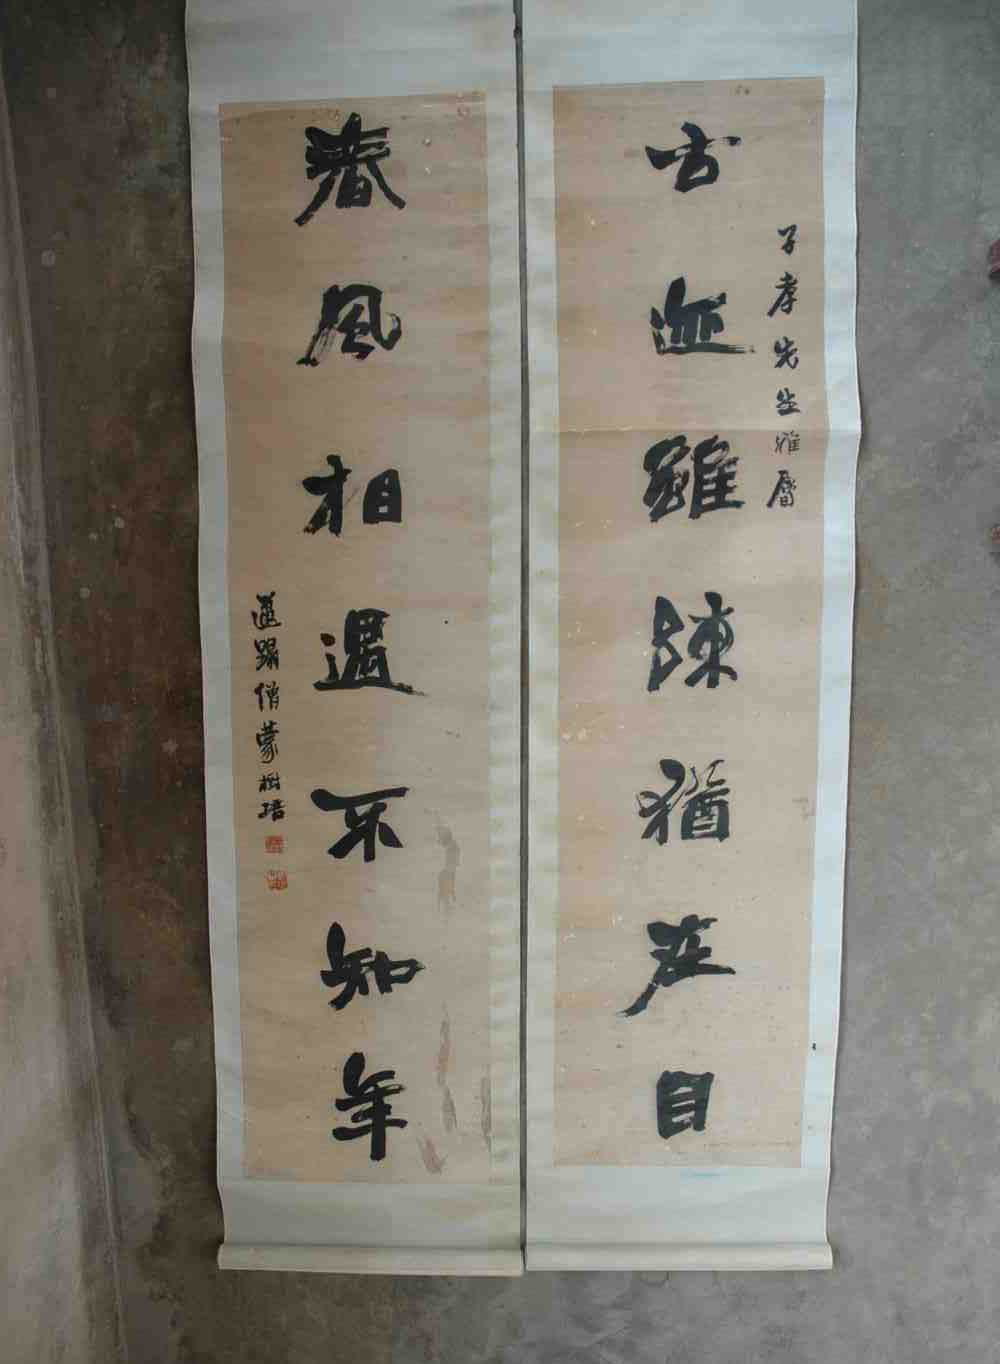 子孝先生雅屬
古迹雖陳猶在目
春風相遇不知年
僧蒙樹培